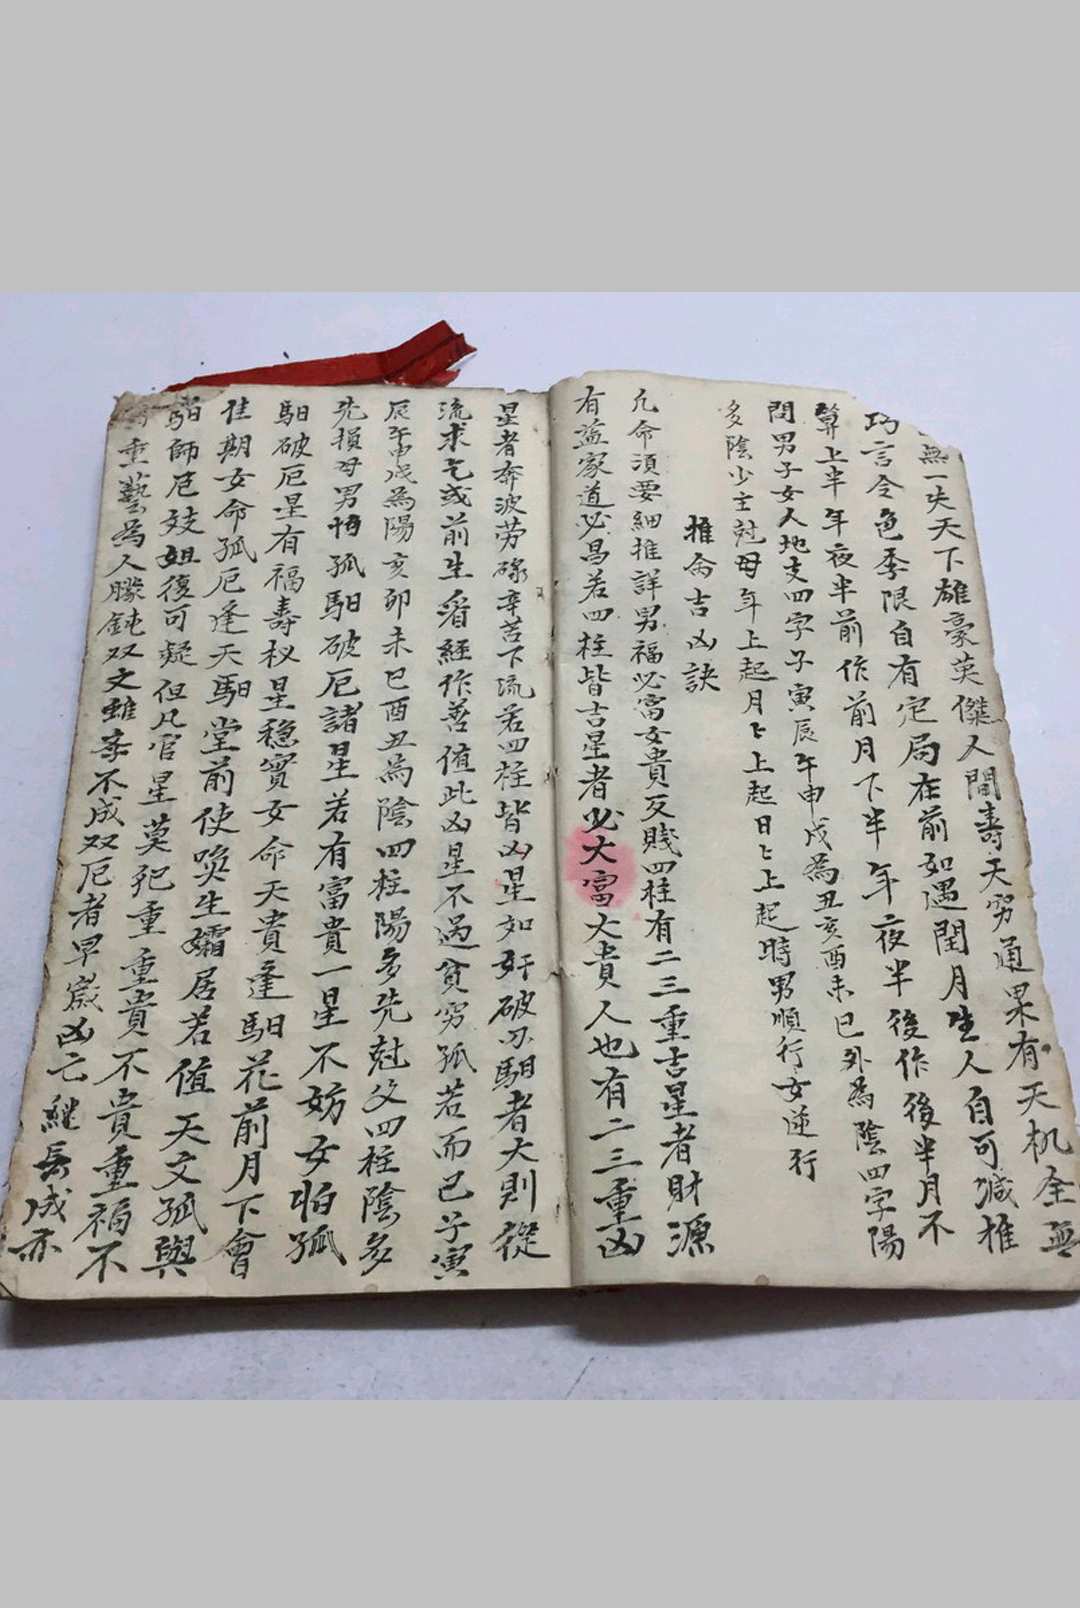 無一失天下雄豪英傑人間壽夭窮通果有天机全無
巧言令色季限自有定局在前如遇閏月生人自可減推
算上半年夜半前作前月下半年夜半後作後半月不
問男子女人地支四字子寅辰午申戌為丑亥酉未巳外為陰四字陽
多陰少主尅母年上起月上上起日上上起時男順行女逆行
推侖吉凶訣
凡命須要細推詳男福必富女貴反賤四柱有二三重吉星者財源
有益家道必昌若四柱皆吉星者必大富大貴人也有二三重凶
星者奔波劳碌辛苦下流若四柱皆凶星如奸破刃馹者大則從
流求乞或前生看經作善值此凶星不過貧窮孤苦而已子寅
辰午申戌為陽亥卯未巳酉丑為陰四柱陽多先尅父四柱陰多
先損母男怕孤馹破厄諸星若有富貴一星不妨女怕孤
馹破厄星有福壽权星稳實女命天貴逢馹花前月下會
佳期女命孤厄逢天馹堂前使喚生孀居若值天文孤與
馹師尼妓姐復可疑但凡官星莫犯重重貴不貴重福不
重藝為人朦鈍双文雖秀不成双厄者早歲凶亡継長成亦